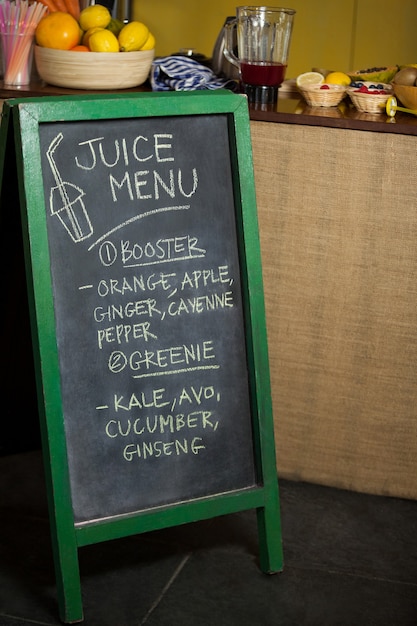 JUICE
MENU
① BOOSTER
- ORANGE, APPLE,
GINGER, CAYENNE
PEPPER
② GREENIE
- KALE, AVO,
CUCUMBER,
GINSENG